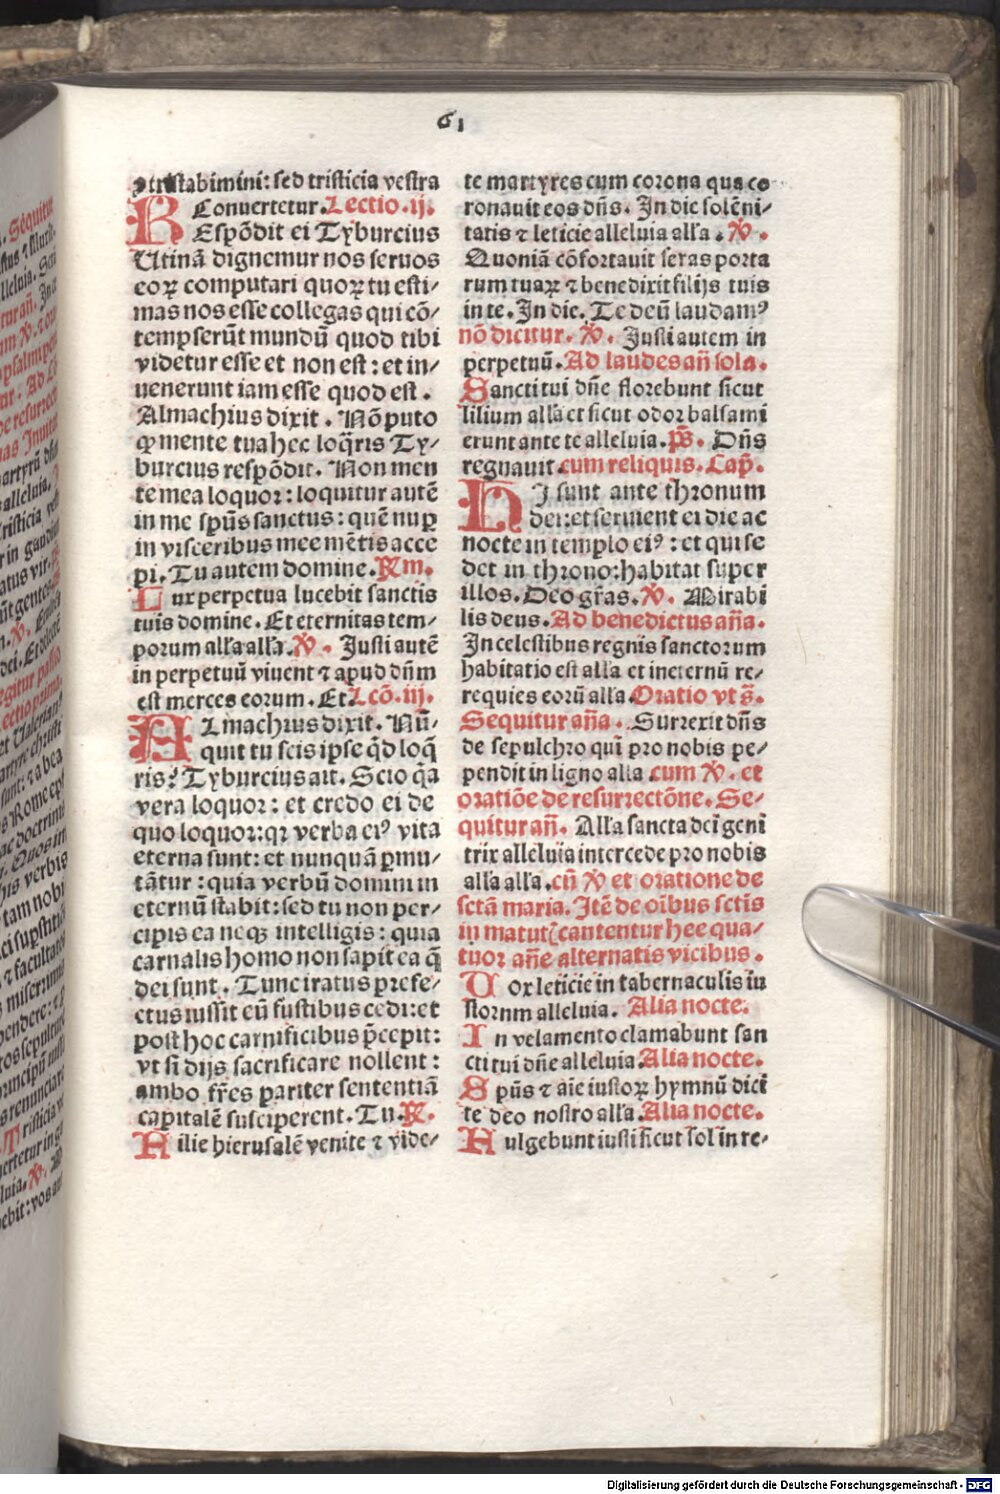 61
ꝯtristabimini: sed tristicia vestra
Conuertetur. Lectio .ij.
REspõdit ei Tyburcius
Utinã dignemur nos seruos
eoꝝ computari quoꝝ tu esti-
mas nos esse collegas qui cõ-
tempserũt mundũ quod tibi
videtur esse et non est: et in-
uenerunt iam esse quod est.
Almachius dixit. Nõ puto
ꝙ mente tua hec loq̃ris Ty-
burcius respõdit. Non men
te mea loquor: loquitur autẽ
in me spũs sanctus: quẽ nuꝑ
in visceribus mee mẽtis acce
pi. Tu autem domine. ℟m.
Lux perpetua lucebit sanctis
tuis domine. Et eternitas tem-
porum alľa alľa. ℣. Justi autẽ
in perpetuũ viuent ⁊ apud dñm
est merces eorum. Et. Lcõ. iij.
ALmachius dixit. Nũ-
quit tu scis ipse q̃d loq̃
ris? Tyburcius ait. Scio q̃a
vera loquor: et credo ei de
quo loquor: qꝛ verba eiꝰ vita
eterna sunt: et nunquã ꝑmu-
tãtur: quia verbũ domini in
eternũ stabit: sed tu non per-
cipis ea neqꝫ intelligis: quia
carnalis homo non sapit ea q̃
dei sunt. Tunc iratus prefe-
ctus iussit eũ fustibus cedi: et
post hoc carnificibus p̃cepit:
vt si dijs sacrificare nollent:
ambo fr̃es pariter sententiã
capitalẽ susciperent. Tu. ℟.
Filie hierusalẽ venite ⁊ vide-
te martyres cum corona qua co
ronauit eos dñs. In die solẽni-
tatis ⁊ leticie alleluia alľa. ℣.
Quoniã cõfortauit seras porta
rum tuaꝝ ⁊ benedixit filijs tuis
in te. In die. Te deũ laudamꝰ
nõ dicitur. ℣. Justi autem in
perpetuũ. Ad laudes añ sola.
Sancti tui dñe florebunt sicut
lilium alľa et sicut odor balsami
erunt ante te alleluia. p̃s. Dñs
regnauit. cum reliquis. Cap̃.
HIj sunt ante thronum
dei: et seruient ei die ac
nocte in templo eiꝰ: et qui se
det in throno: habitat super
illos. Deo gr̃as. ℣. Mirabi
lis deus. Ad benedictus aña.
In celestibus regnis sanctorum
habitatio est alľa et ineternũ re-
requies eorũ alľa. Oratio vt s̃.
Sequitur aña. Surrexit dñs
de sepulchro qui pro nobis pe-
pendit in ligno alľa. cum ℣. et
oratiõe de resurrectõne. Se-
quitur añ. Alľa sancta dei geni
trix alleluia intercede pro nobis
alľa alľa. cũ ℣ et oratione de
sctã maria. Itẽ de oĩbus sctĩs
in matuť cantentur hee qua-
tuor añe alternatis vicibus.
Vox leticie in tabernaculis iu
stornm alleluia. Alia nocte.
In velamento clamabunt san
cti tui dñe alleluia. Alia nocte.
Spũs ⁊ aĩe iustoꝝ hymnũ dicĩ
te deo nostro alľa. Alia nocte.
Fulgebunt iusti sicut sol in re-
Digitalisierung gefördert durch die Deutsche Forschungsgemeinschaft - DFG